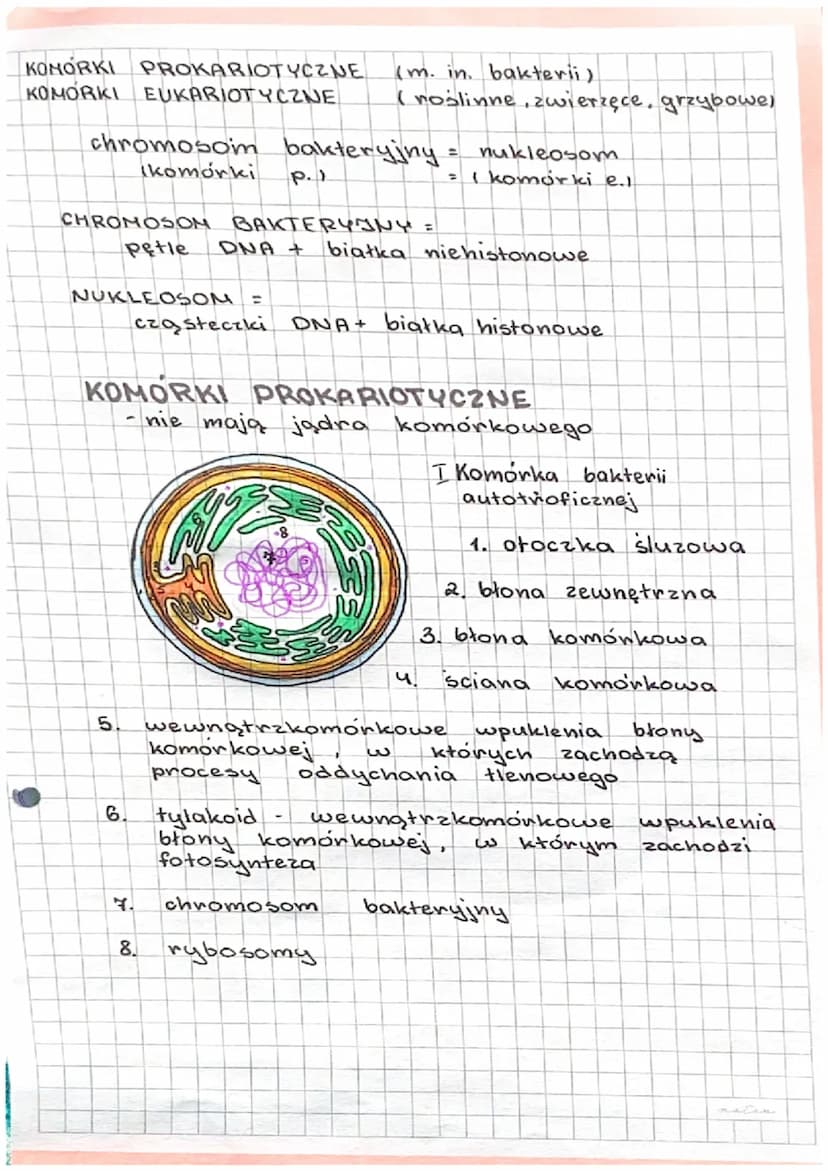 KOMÓRKI PROKARIOTYCZNE (m. in. bakterii)
KOMÓRKI EUKARIOTYCZNE (roślinne, zwierzęce, grzybowe)
chromosom bakteryjny = nukleosom
(komórki p.) = (komórki e.)
CHROMOSOM BAKTERYJNY =
pętle DNA + białka niehistonowe
NUKLEOSOM =
cząsteczki DNA + białka histonowe
KOMÓRKI PROKARIOTYCZNE
- nie mają jądra komórkowego
I Komórka bakterii
autotroficznej
1. otoczka śluzowa
2. błona zewnętrzna
3. błona komórkowa
4. ściana komórkowa
5. wewnątrzkomórkowe wpuklenia błony
komórkowej, w których zachodzą
procesy oddychania tlenowego
6. tylakoid - wewnątrzkomórkowe wpuklenia
błony komórkowej, w którym zachodzi
fotosynteza
7. chromosom bakteryjny
8. rybosomy